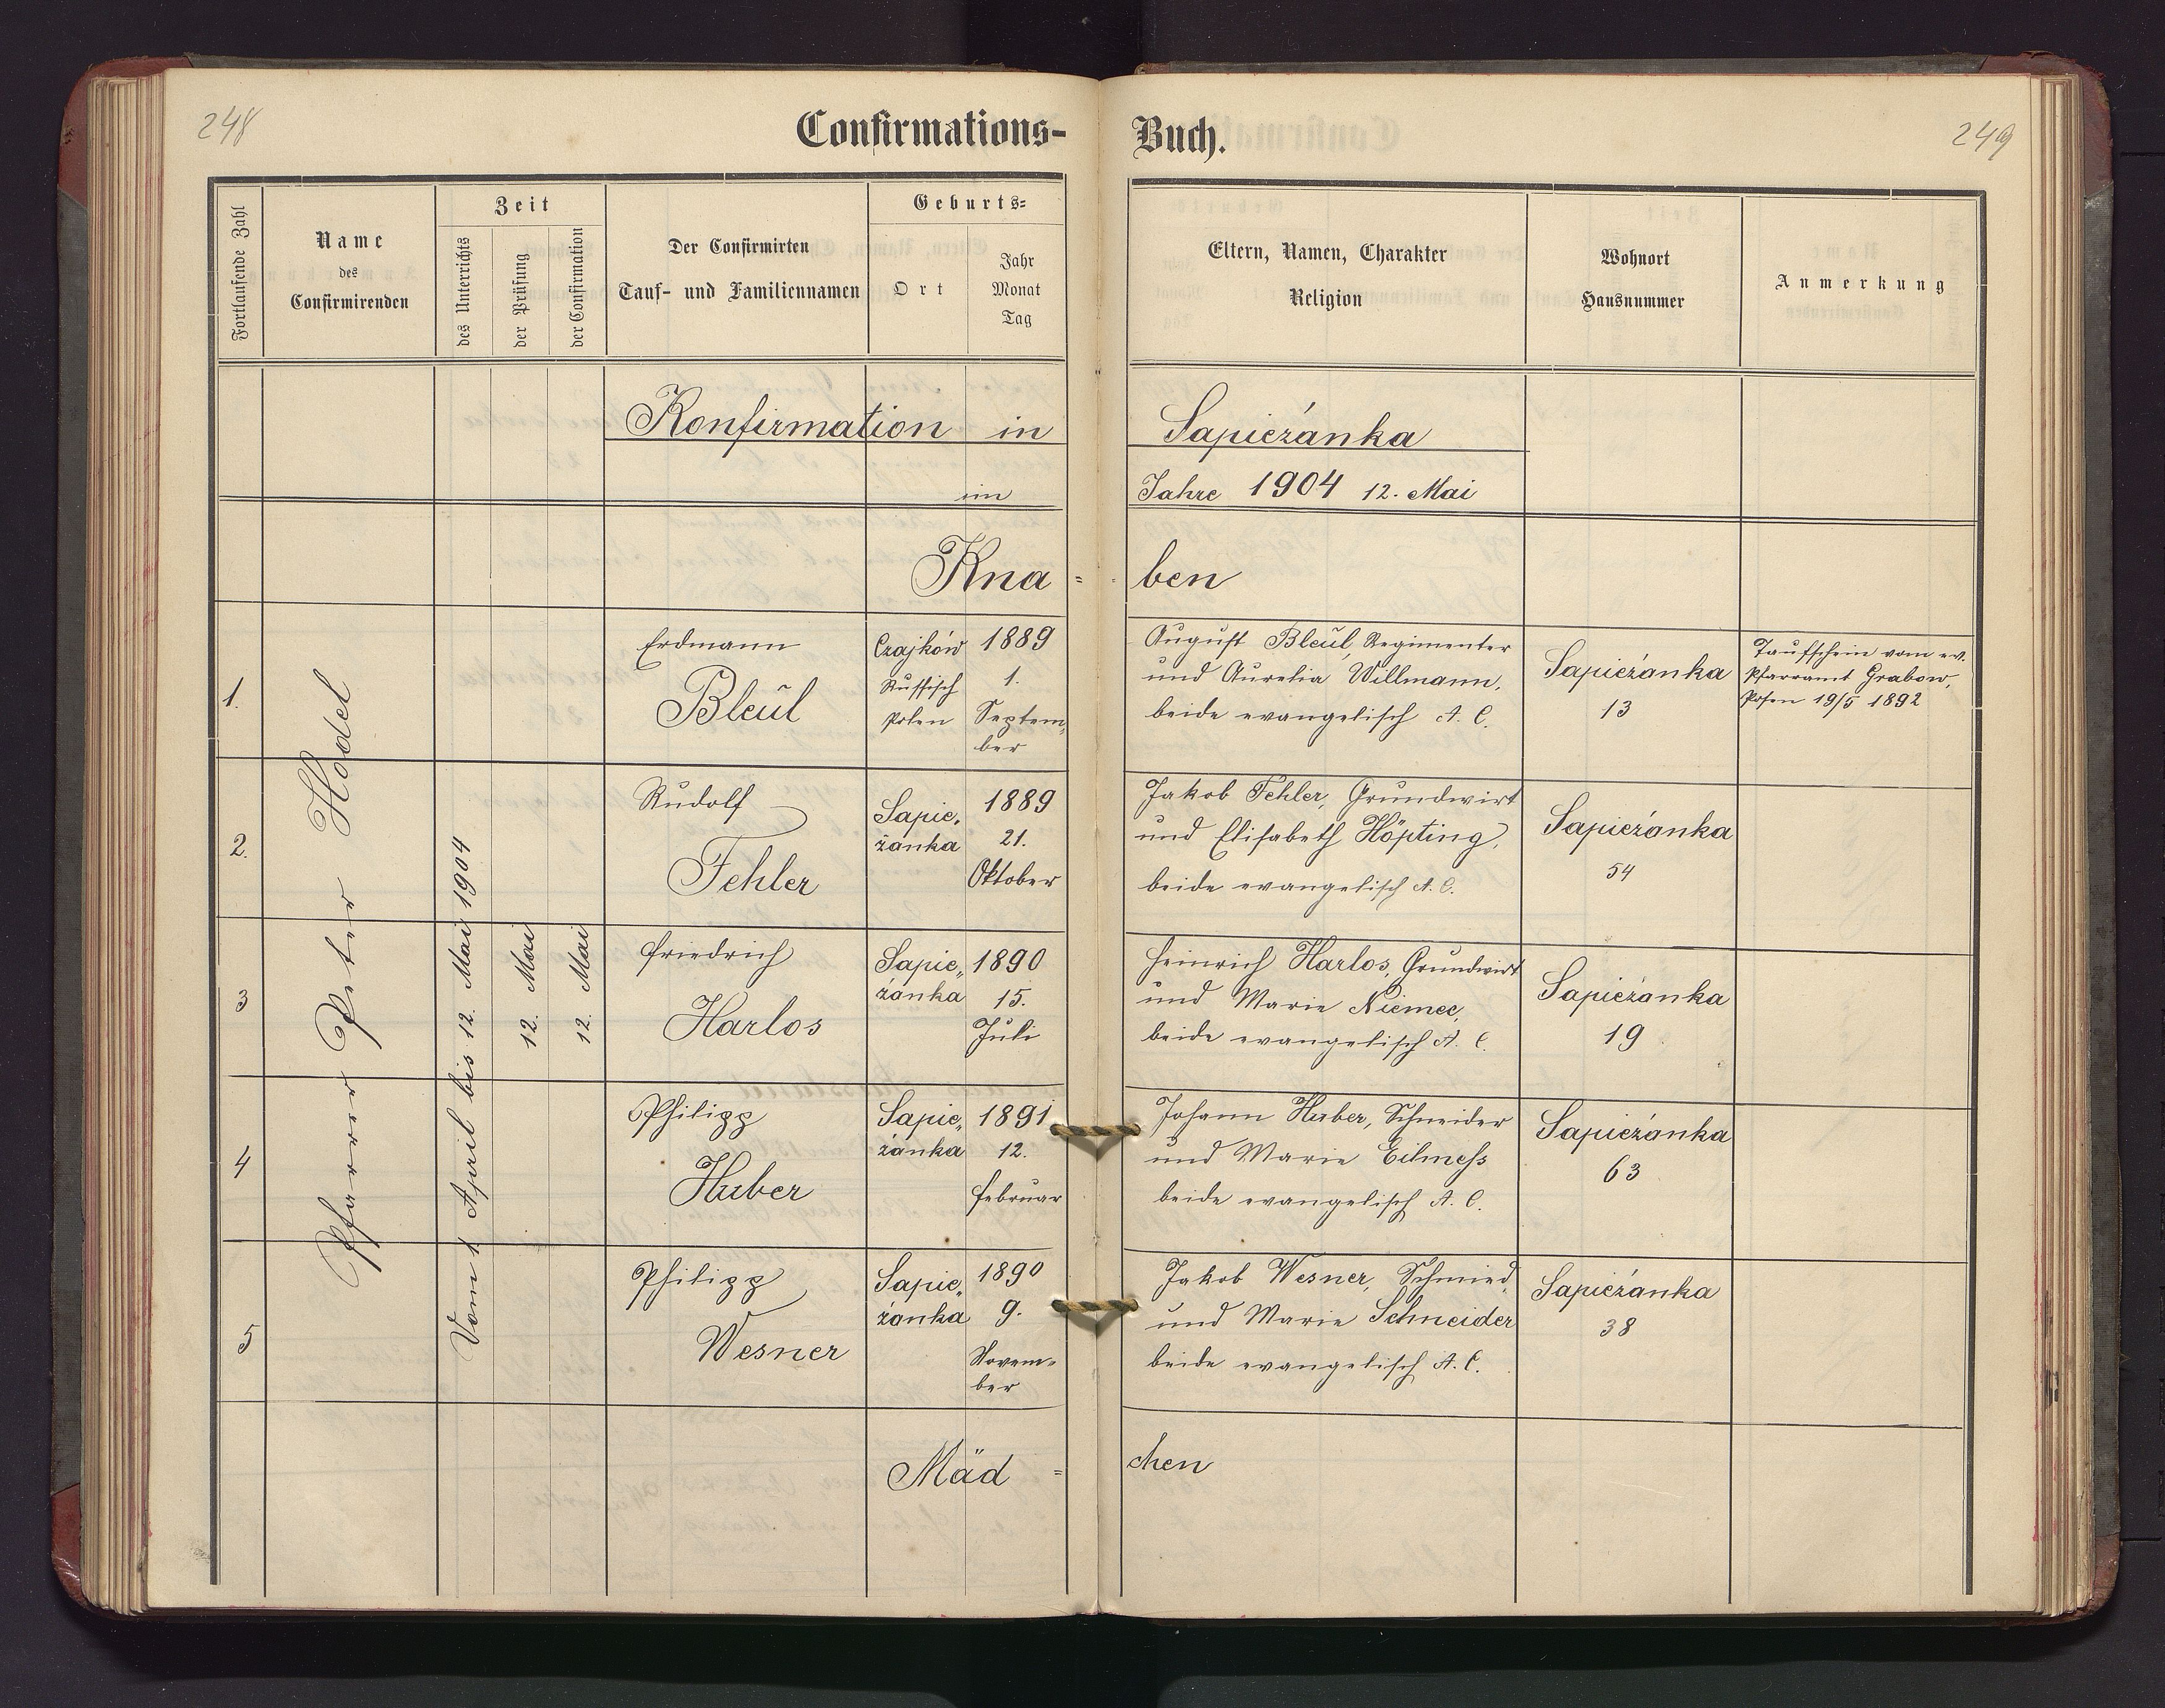 248
Confirmations-
Buch.
249
Fortlaufende Zahl
Name
des
Confirmirenden
Zeit
des Unterrichts
der Prüfung
der Confirmation
Der Confirmirten
Tauf- und Familiennamen
Geburts-
Ort
Jahr
Monat
Tag
Eltern, Namen, Charakter
Religion
Wohnort
Hausnummer
Anmerkung
Konfirmation in
Sapieżanka
im
Jahre 1904 12. Mai
Kna=
ben
Pfarrer Peter Hodel
Vom 1 April bis 12. Mai 1904
12. Mai
12. Mai
1.
Erdmann
Bleŭl
Czajków
Russisch
Polen
1889
1.
Septem,
ber
August Bleŭl, Regimenter
und Aurelia Willmann,
beide evangelisch A. C.
Sapieżanka
13
Taufschein vom ev.
Pfarramt Grabow,
Posen 19/5 1892
2.
Rudolf
Fehler
Sapie,
żanka
1889
21.
Oktober
Jakob Fehler, Grundwirt
und Elisabeth Höpting,
beide evangelisch A. C.
Sapieżanka
54
3
Friedrich
Harlos
Sapie,,
żanka
1890
15.
Juli
Heinrich Harlos, Grundwirt
und Marie Niemec,
beide evangelisch A. C.
Sapieżanka
19
4
Philipp
Huber
Sapie,,
żanka
1891
12.
Februar
Johann Huber, Schneider
und Marie Eilmess
beide evangelisch A. C.
Sapieżanka
63
5
Philipp
Wesner
Sapie,,
żanka
1890
9.
Novem=
ber
Jakob Wesner, Schmied,
und Marie Schneider
beide evangelisch A. C.
Sapieżanka
38
Mäd=
chen